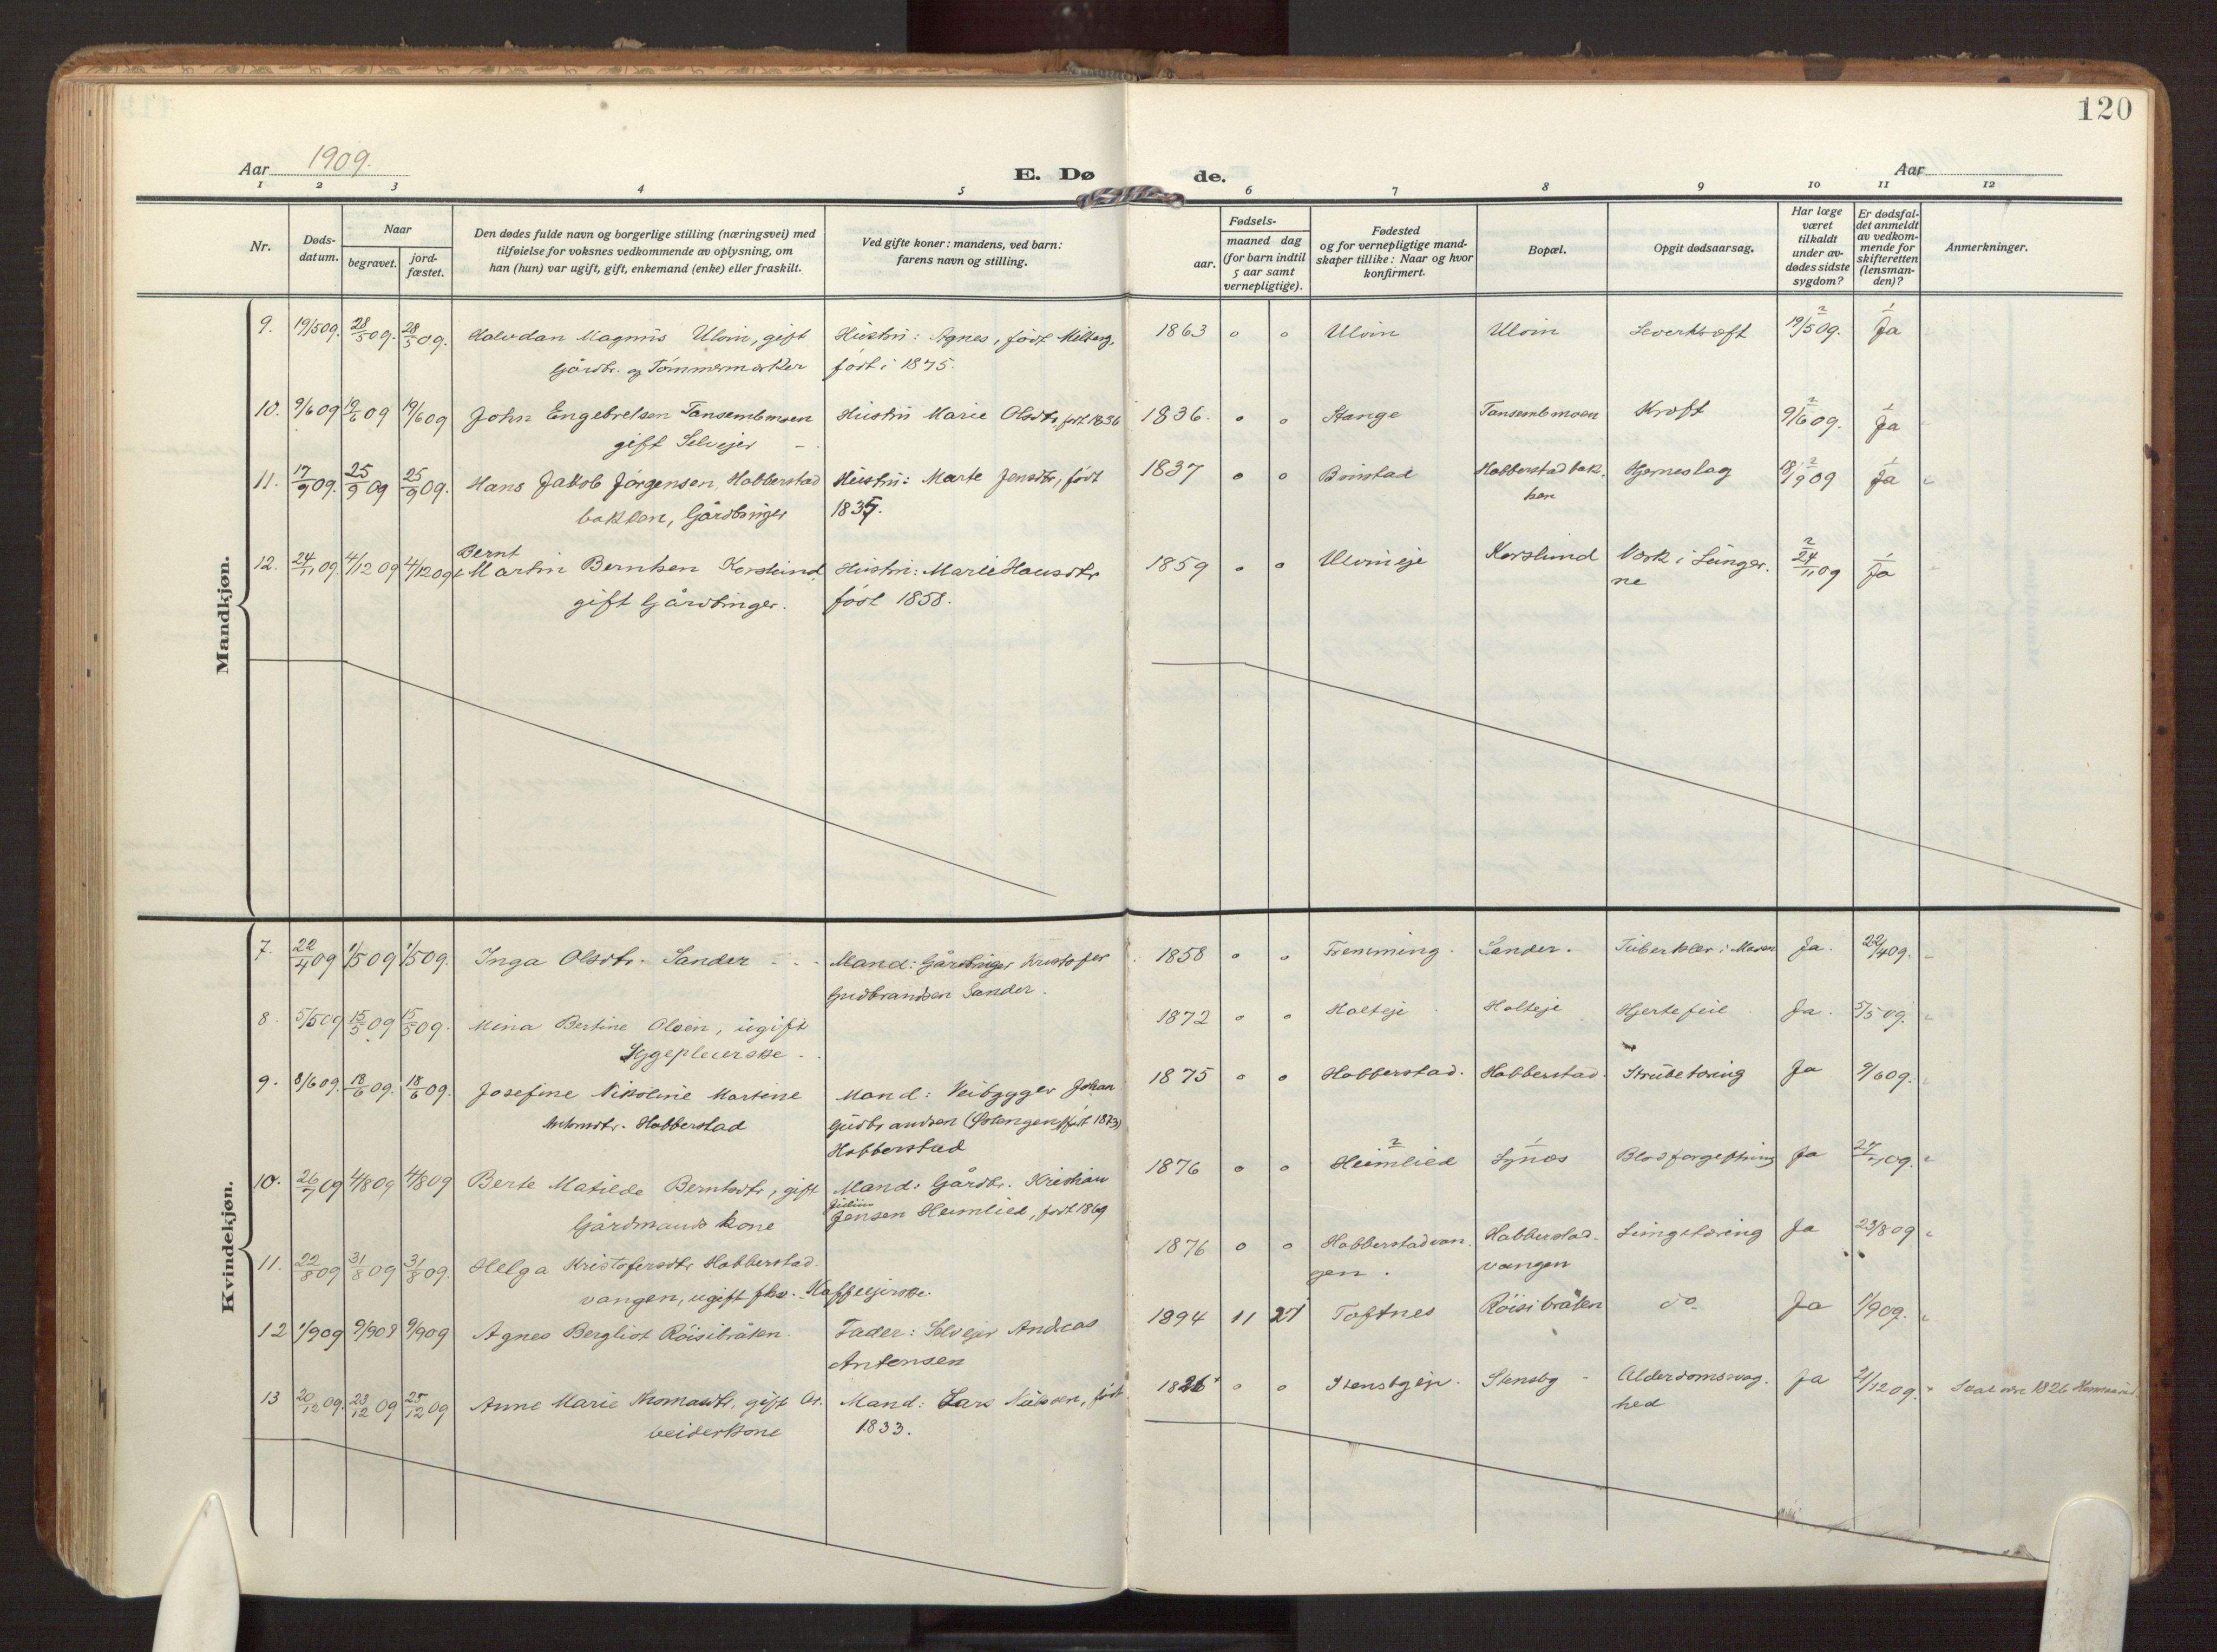 120
Aar 1909.
E. Dø de.
Aar
1 2 3 4 5 6 7 8 9 10 11 12
Nr.
Døds-
datum.
Naar
begravet.
jord-
fæstet.
Den dødes fulde navn og borgerlige stilling (næringsvei) med
tilføielse for voksnes vedkommende av oplysning, om
han (hun) var ugift, gift, enkemand (enke) eller fraskilt.
Ved gifte koner: mandens, ved barn:
farens navn og stilling.
Fødsels-
aar.
maaned dag
(for barn indtil
5 aar samt
vernepligtige).
Fødested
og for vernepligtige mand-
skaper tillike: Naar og hvor
konfirmert.
Bopæl.
Opgit dødsaarsag.
Har læge
været
tilkaldt
under av-
dødes sidste
sygdom?
Er dødsfal-
det anmeldt
av vedkom-
mende for
skifteretten
(lensman-
den)?
Anmerkninger.
Mandkjøn.
9. 19/5 09. 28/5 09. 28/5 09. Halvdan Magnus Ulvin, gift Hustru: Agnes, født Milberg, 1863 0 0 Ulvin Ulvin Leverkræft 2 19/5 09. 1 Ja
Gårdbr. og Tømmermerker født i 1875.
10. 9/6 09 19/6 09 19/6 09 John Engebretsen Tansembmoen Hustru Marie Olsdtr, født 1836 1836. 0 0 Stange Tansembmoen Kræft 2 9/6 09. 1 Ja
gift Selveier
11. 17/9 09. 25/9 09 25/9 09. Hans Jakob Jørgensen, Habberstad Hustru: Marte Jensdtr, født 1837 0 0 Bunstad Habberstadbak- Hjerneslag 2 18/9 09 1 Ja
bakken, Gårdbruger 1835. ken
Bernt
12. 24/11 09. 4/12 09 4/12 09 Martin Berntsen Korslund Hustru: Marie Hansdtr 1859 0 0 Ulvineje Korslund Værk i Lunger- 2 24/11 09 1 Ja
gift Gårdbruger. født 1858. ne
Kvindekjøn.
7. 22/4 09 1/5 09 1/5 09. Inga Olsdtr. Sander Mand: Gårdbruger Kristofer 1858 0 0 Fremming. Sander. Tuberkler i Maven Ja. 22/4 09.
Gudbrandsen Sander.
8. 5/5 09 15/5 09 15/5 09. Mina Bertine Olsen, ugift 1872 0 0 Holteje Holteje Hjertefeil Ja. 5/5 09.
Sygepleierske
9. 8/6 09. 18/6 09. 18/6 09. Josefine Nikoline Martine Mand: Veibygger Johan 1875 0 0 Habberstad. Habberstad. Strubetæring Ja 9/6 09.
Antonsdtr. Habberstad Gudbrandsen (Østengen) født 1873)
Habberstad
10. 26/7 09 4/8 09 4/8 09 Berte Matilde Berntsdtr, gift Mand: Gårdbr. Kristian 1876 0 0 2 Heimlied 1 Synæs Blodforgiftning Ja 27/7 09.
Gårdmands kone Julius Jensen Heimlied, født 1869
11. 22/8 09 31/8 09 31/8 09. Helga Kristofersdtr Habberstad- 1876 0 0 Habberstadvan- Habberstad- Lungetæring Ja 23/8 09
vangen, ugift fhv. Kaffeejerske. gen. vangen
12 1/9 09 9/9 09 9/9 09 Agnes Bergliot Röisibråten. Fader: Selvejer Andreas 1894 11 27 Toftnes Röisibråten do Ja 1/9 09.
Antonsen
13 20/12 09. 23/12 09 23/12 09 Anne Marie Thomasdtr, gift Ar- Mand: Lars Nilssen, født 1826 0 0 Stensbyeje. Stensby Alderdomsvag- Ja 21/12 09. Skal være 1826
beiderkone 1833. hed